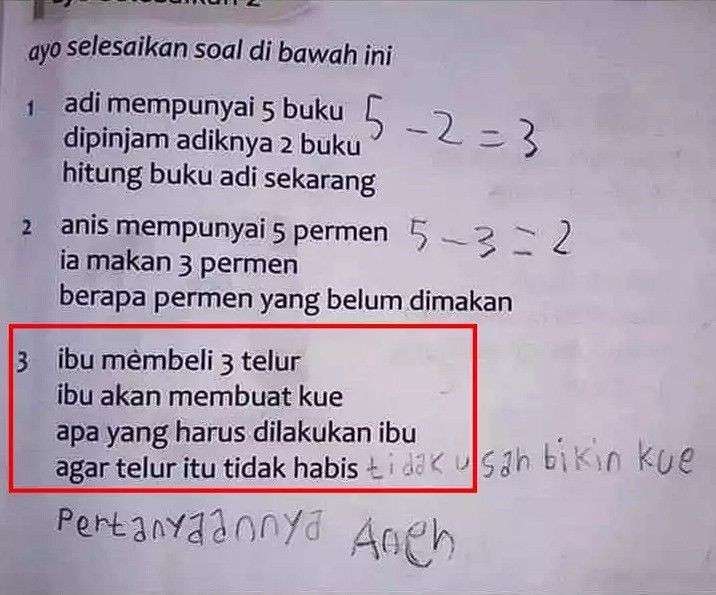 ayo selesaikan soal di bawah ini
1 adi mempunyai 5 buku 5 - 2 = 3
dipinjam adiknya 2 buku
hitung buku adi sekarang
2 anis mempunyai 5 permen 5 - 3 = 2
ia makan 3 permen
berapa permen yang belum dimakan
3 ibu membeli 3 telur
ibu akan membuat kue
apa yang harus dilakukan ibu
agar telur itu tidak habis tidak usah bikin kue
Pertanyaannya Aneh